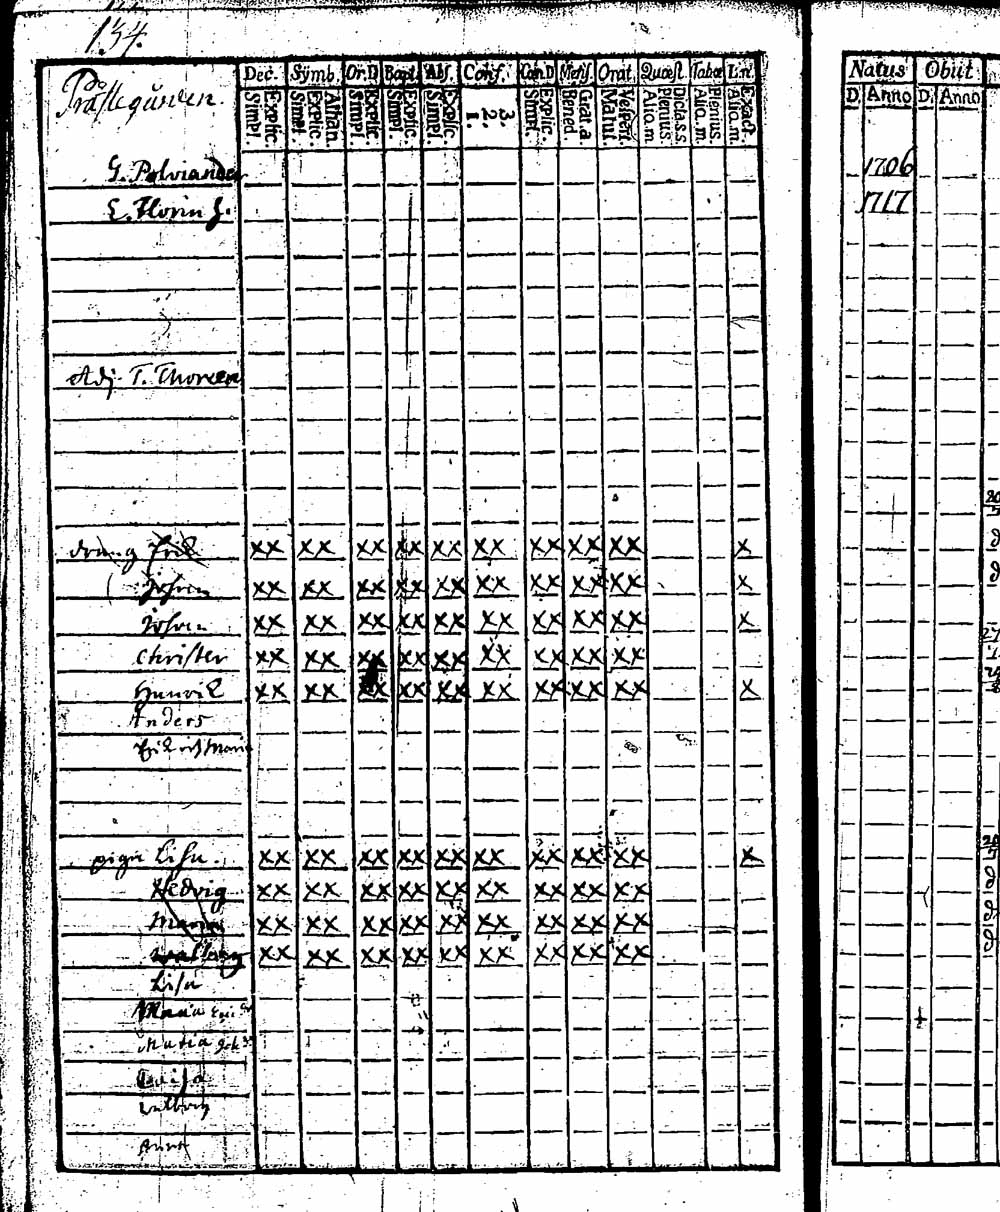 134.
Dec. Symb. Or.D Bapt. Abs. Conf. Can.D Mens. Orat. Quæst. Tabæ Lin.
Prästegården.
Explic. Simpl. Athan. Explic. Simpl. Explic. Simpl. Explic. Simpl. Explic. Simpl. 3. 2. 1. Explic. Simpl. Grat. a. Bened. Vespert. Matut. Dict. a. s. s. Plenius Aliq. m. Plenius. Aliq. m. Exact. Aliq. m.
G. Polviander
E. Florin G.
Adj. T. Thoreen
dräng Erik xx xx xx xx xx xx xx xx xx x
Johan xx xx xx xx xx xx xx xx xx x
Johan xx xx xx xx xx xx xx xx xx x
Christer xx xx xx xx xx xx xx xx xx
Hinric xx xx xx xx xx xx xx xx xx x
Anders
Erik
pigu Lisa. xx xx xx xx xx xx xx xx xx x
Hedvig xx xx xx xx xx xx xx xx xx
Maria xx xx xx xx xx xx xx xx xx
Walborg xx xx xx xx xx xx xx xx xx
Lisa
Maria
Maria
Walborg
Anna
Natus Obiit
D. Anno D. Anno
1706
1717